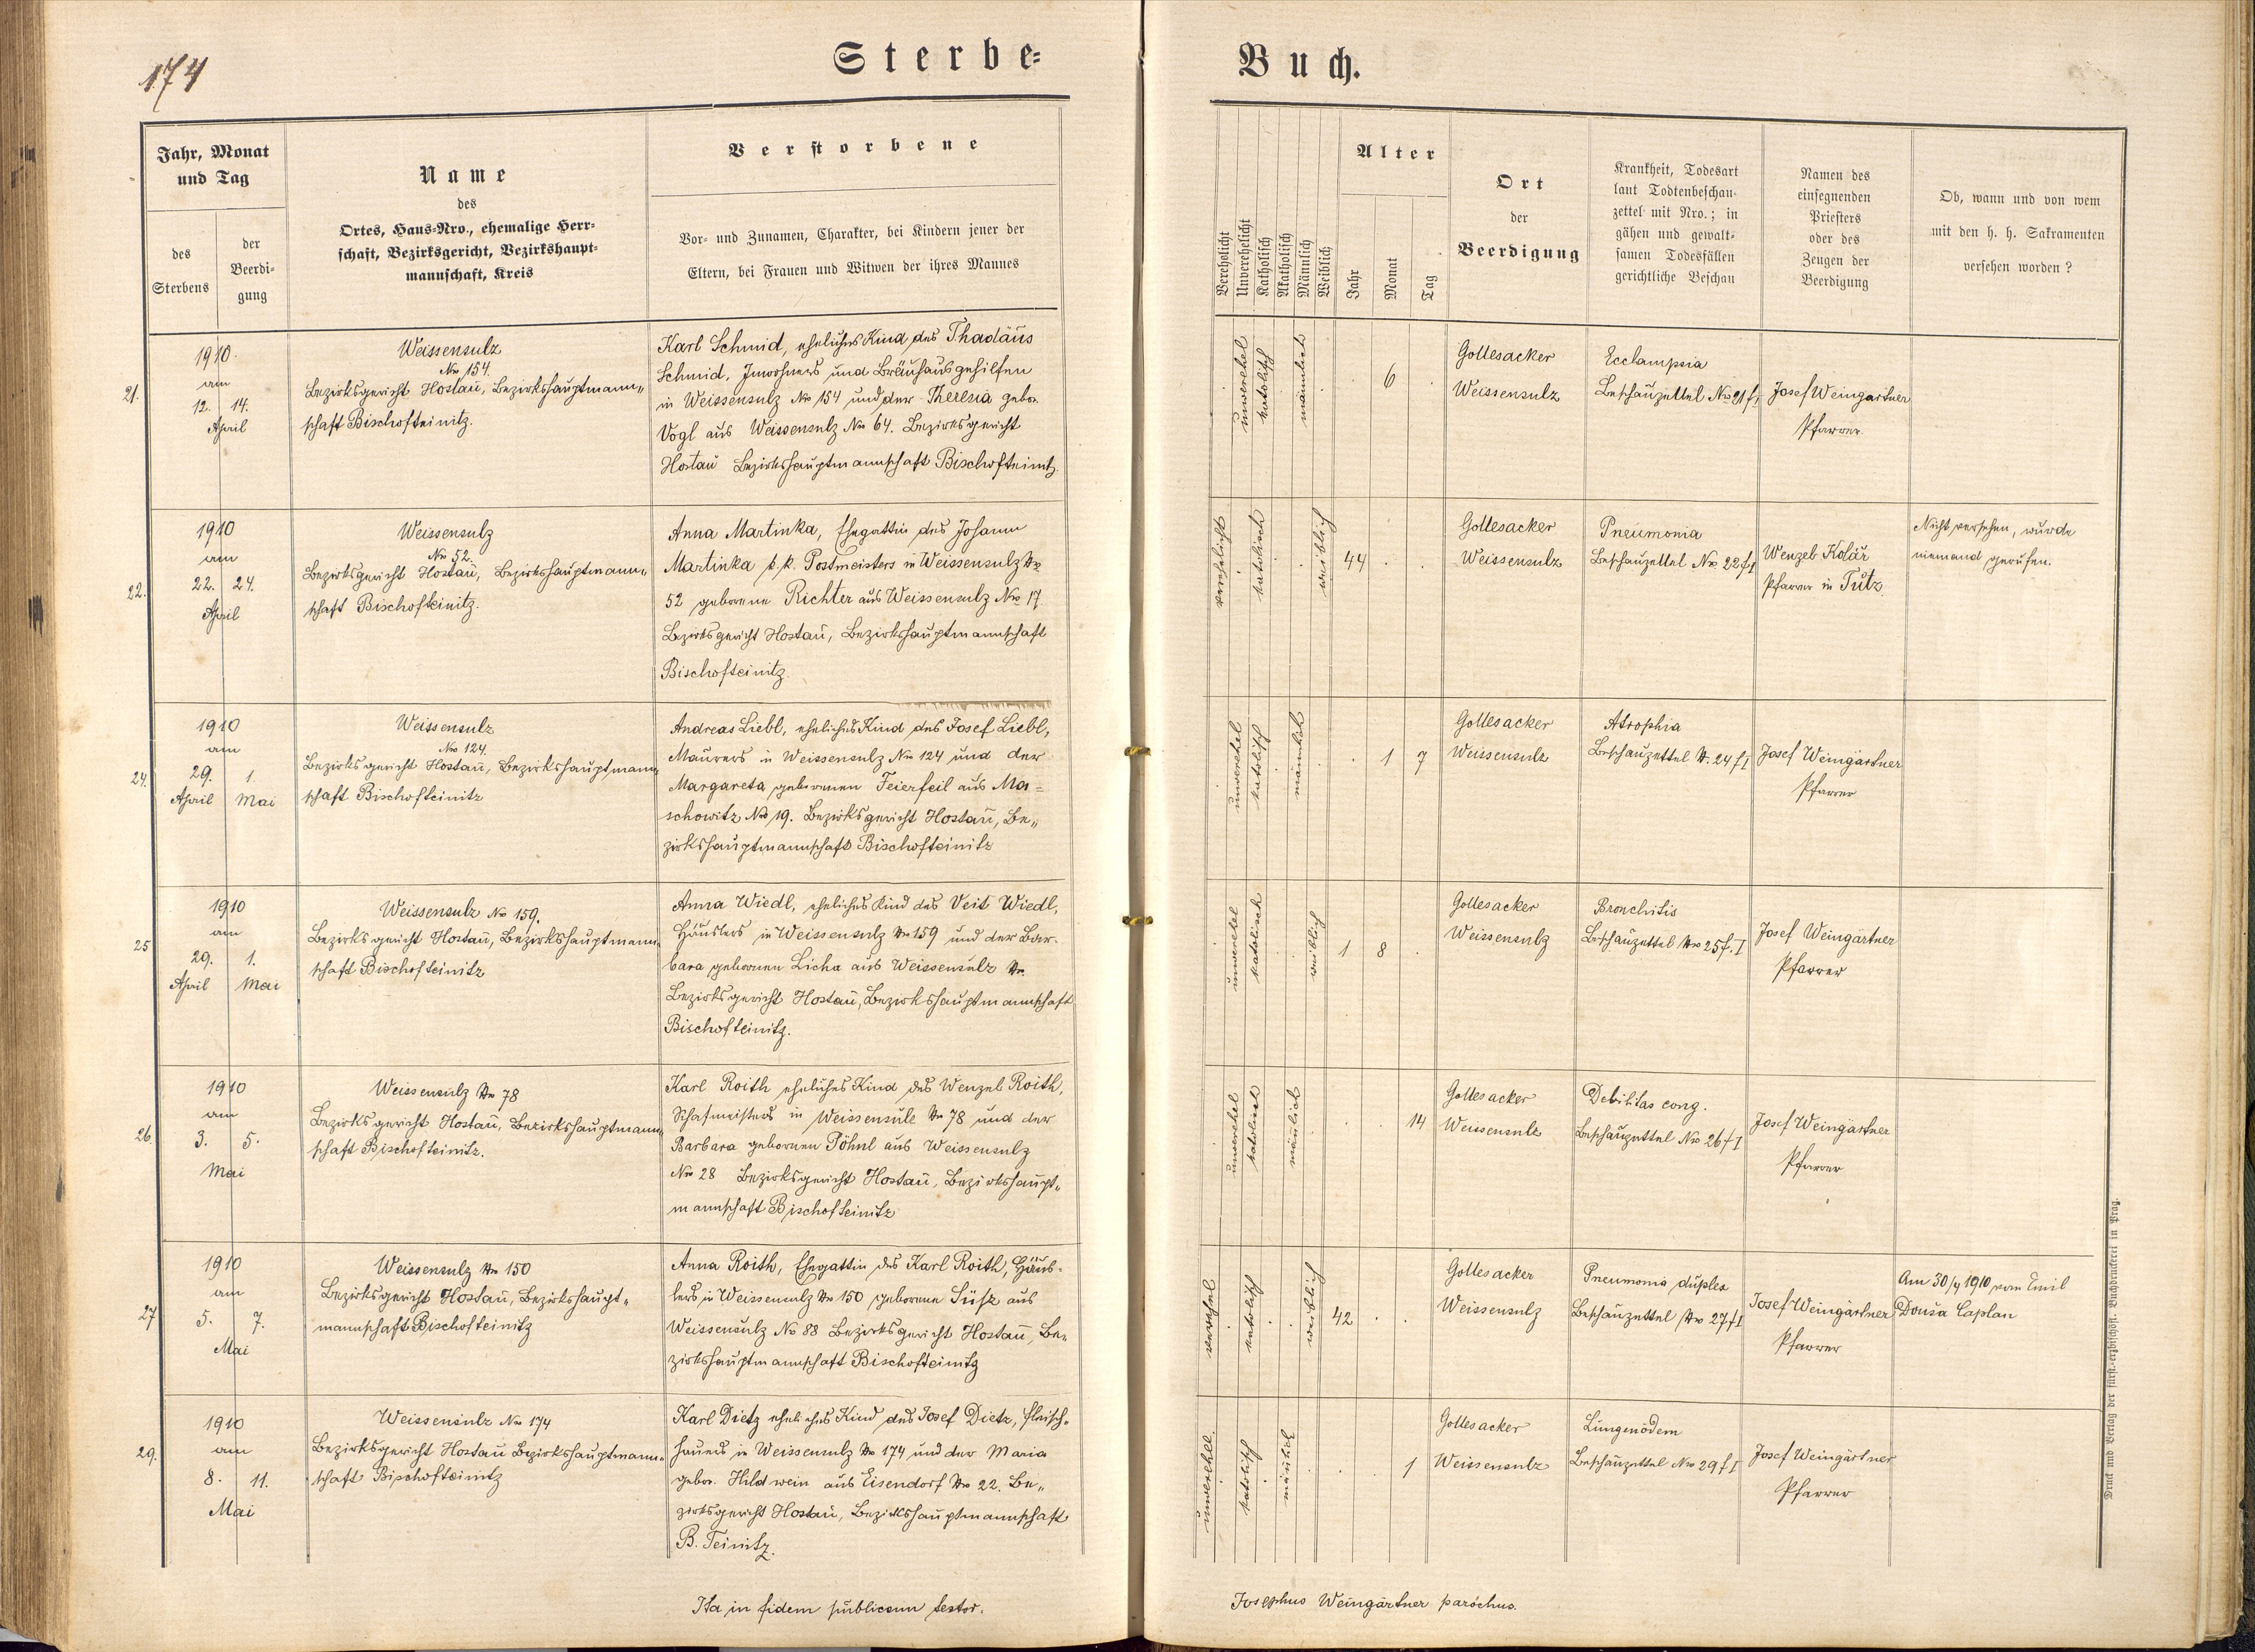 174
Sterbe=
Buch.
Jahr, Monat
und Tag
des
Sterbens
der
Beerdi-
gung
Name
des
Ortes, Haus-Nro., ehemalige Herr-
schaft, Bezirksgericht, Bezirkshaupt-
mannschaft, Kreis
Verstorbene
Vor- und Zunamen, Charakter, bei Kindern jener der
Eltern, bei Frauen und Witwen der ihres Mannes
Verehelicht
Unverehelicht
Katholisch
Akatholisch
Männlich
Weiblich
Alter
Jahr
Monat
Tag
Ort
der
Beerdigung
Krankheit, Todesart
laut Todtenbeschau-
zettel mit Nro.; in
gähen und gewalt-
samen Todesfällen
gerichtliche Beschau
Namen des
einsegnenden
Priesters
oder des
Zeugen der
Beerdigung
Ob, wann und von wem
mit den h. h. Sakramenten
versehen worden?
21.
1910.
am
12. 14.
April
Weissensulz
No 154.
Bezirksgericht Hostau, Bezirkshauptmann„
schaft Bischofteinitz.
Karl Schmid, eheliches Kind des Thadäus
Schmid, Inwohners und Bräuhausgehilfen
in Weissensulz No 154 und der Theresia gebor.
Vogl aus Weissensulz No 64. Bezirksgericht
Hostau Bezirkshauptmannschaft Bischofteinitz.
unverehel
katolisch
männlich
6
Gottesacker
Weissensulz
Ecclampsia
Beschauzettel No 21 f I
Josef Weingärtner
Pfarrer
22.
1910
am
22. 24.
April
Weissensulz
No 52.
Bezirksgericht Hostau, Bezirkshauptmann„
schaft Bischofteinitz.
Anna Martinka, Ehegattin des Johann
Martinka k. k. Postmeisters in Weissensulz No
52 geborene Richter aus Weissensulz No 17
Bezirksgericht Hostau, Bezirkshauptmannschaft
Bischofteinitz.
verehelicht
katolisch
weiblich
44
Gottesacker
Weissensulz
Pneumonia
Beschauzettel No 22 f I
Wenzel Kolář
Pfarrer in Tutz
Nicht versehen, wurde
niemand gerufen.
24.
1910
am
29. 1.
April Mai
Weissensulz
No 124.
Bezirksgericht Hostau, Bezirkshauptmann„
schaft Bischofteinitz
Andreas Liebl, eheliches Kind des Josef Liebl,
Maurers in Weissensulz No 124 und der
Margareta gebornenen Feierfeil aus Ma=
schowitz No 19. Bezirksgericht Hostau, Be„
zirkshauptmannschaft Bischofteinitz
unverehel
katolisch
männlich
1 7
Gottesacker
Weissensulz
Atrophia
Beschauzettel No 24 f I
Josef Weingärtner
Pfarrer
25
1910
am
29. 1.
April Mai
Weissensulz No 159.
Bezirksgericht Hostau, Bezirkshauptmann„
schaft Bischofteinitz
Anna Wiedl, eheliches Kind des Veit Wiedl,
Häuslers in Weissensulz No 159 und der Bar-
bara gebornen Licha aus Weissensulz No
Bezirksgericht Hostau, Bezirkshauptmannschaft
Bischofteinitz.
unverehel
katolisch
weiblich
1 8
Gottesacker
Weissensulz
Bronchitis
Beschauzettel No 25 f. I
Josef Weingärtner
Pfarrer
26.
1910
am
3. 5.
Mai
Weissensulz No 78
Bezirksgericht Hostau, Bezirkshauptmann„
schaft Bischofteinitz.
Karl Roith eheliches Kind des Wenzel Roith,
Schafmeisters in Weissensulz No 78 und der
Barbara gebornen Pöhnl aus Weissensulz
No 28 Bezirksgericht Hostau, Bezirkshaupt„
mannschaft Bischofteinitz
unverehel
katolisch
mänlich
14
Gottesacker
Weissensulz
Debilitas cong.
Beschauzettel No 26 f I
Josef Weingärtner
Pfarrer
27
1910
am
5. 7.
Mai
Weissensulz No 150
Bezirksgericht Hostau, Bezirkshaupt„
mannschaft Bischofteinitz
Anna Roith, Ehegattin des Karl Roith, Häus-
lers in Weissensulz No 150 geborene Süß aus
Weissensulz No 88 Bezirksgericht Hostau, Be„
zirkshauptmannschaft Bischofteinitz
verehel
katolisch
weiblich
42
Gottesacker
Weissensulz
Pneumonia duplex
Beschauzettel No 27 f I
Josef Weingärtner
Pfarrer
Am 30/4 1910 vom Emil
Douša Caplan
29.
1910
am
8. 11.
Mai
Weissensulz No 174
Bezirksgericht Hostau Bezirkshauptmann„
schaft Bischofteinitz
Karl Dietz eheliches Kind des Josef Dietz, Fleisch„
hauers in Weissensulz No 174 und der Maria
gebor. Hildwein aus Eisendorf No 22. Be„
zirksgericht Hostau, Bezirkshauptmannschaft
B. Teinitz.
unverehel.
katolisch
mänlich
1
Gottesacker
Weissensulz
Lungenödem
Beschauzettel No 29 f I
Josef Weingärtner
Pfarrer
Ita in fidem publicam testor.
Josephus Weingärtner parochus.
Druck und Verlag der fürst.-erzbischöfl. Buchdruckerei in Prag.